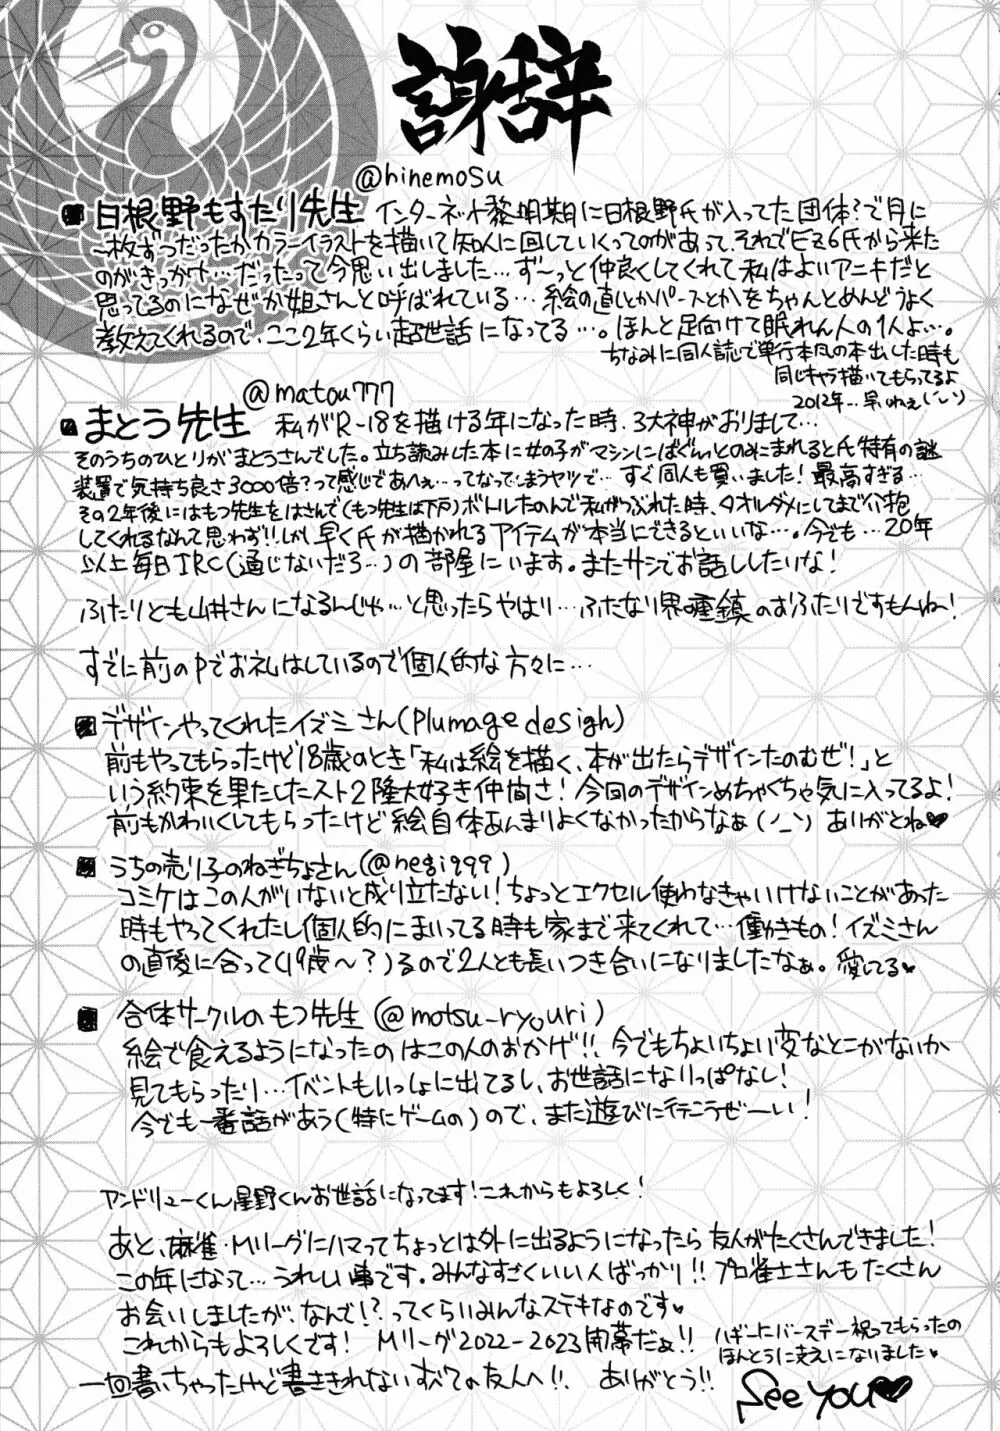 謝辞
@hinemosu
■白根野もすたり先生 インターネット黎明期に白根野氏が入ってた団体?で月に
一枚ずつだったかカラーイラストを描いて知人に回していくってのがあって、それでEz6氏から来た
のがきっかけ…だったって今思い出しました…ず〜っと仲良くしてくれて私はよいアニキだと
思ってるのになぜか姐さんと呼ばれている…絵の直しとかパースとかをちゃんとめんどうよく
教えてくれるので、ここ2年くらい超世話になってる…。ほんと足向けて眠れん人の1人よ…。
ちなみに同人誌で単行本風の本出した時も
同じキャラ描いてもらってるよ
2012年…早いねぇ
@matou777
■まとう先生 私がR-18を描ける年になった時、3大神がおりまして…
そのうちのひとりがまとうさんでした。立ち読みした本に女の子がマシンにばぐんっとのみこまれると氏特有の謎
装置で気持ち良さ3000倍?って感じであへぇ…ってなってしまうヤツで…すぐ同人も買いました!最高すぎる…
その2年後にはもつ先生をはさんで(もつ先生は下戸)ボトルたのんで私がつぶれた時、タオルダメにしてまで介抱
してくれるなんて思わず!!しかし早く氏が描かれるアイテムが本当にできるといいな…。今でも…20年
以上毎日IRC(通じないだろ…)の部屋にいます。またサシでお話ししたいな!
ふたりとも山井さんになるんじゃ…と思ったらやはり…ふたなり界の重鎮のおふたりですもんね〜!
すでに前のPでお礼はしているので個人的な方々に…
■デザインやってくれたイズミさん(Plumage design)
前もやってもらったけど18歳のとき「私は絵を描く、本が出たらデザインたのむぜ!」と
いう約束を果たしたスト2隆大好き仲間さ!今回のデザインめちゃくちゃ気に入ってるよ!
前もかわいくしてもらったけど絵自体あんまりよくなかったからなぁ(ノ_ン)ありがとね♥
■うちの売り子のねぎちょさん(@negi999)
コミケはこの人がいないと成り立たない!ちょっとエクセル使わなきゃいけないことがあった
時もやってくれたし個人的にまいってる時も家まで来てくれて…働きもの!イズミさん
の直後に合って(19歳〜?)るので2人とも長いつき合いになりましたなぁ。愛してる♥
■合体サークルのもつ先生(@motsu_ryouri)
絵で食えるようになったのはこの人のおかげ!!今でもちょいちょい変なとこがないか
見てもらったり…イベントもいっしょに出てるし、お世話になりっぱなし!
今でも一番話があう(特にゲームの)ので、また遊びに行こうぜーい!
アンドリューくん星野くんお世話になってます!これからもよろしく!
あと、麻雀・Mリーグにハマってちょっとは外に出るようになったら友人がたくさんできました!
この年になって…うれしい事です。みんなすごくいい人ばっかり!!プロ雀士さんもたくさん
お会いしましたが、なんで!?ってくらいみんなステキなのです♥
これからもよろしくです! Mリーグ2022-2023開幕だぁ!!
ハギーにバースデー祝ってもらったの
ほんとうに支えになりました♥
一回書いちゃったけど書ききれないすべての友人へ!! ありがとう!!
See you♥